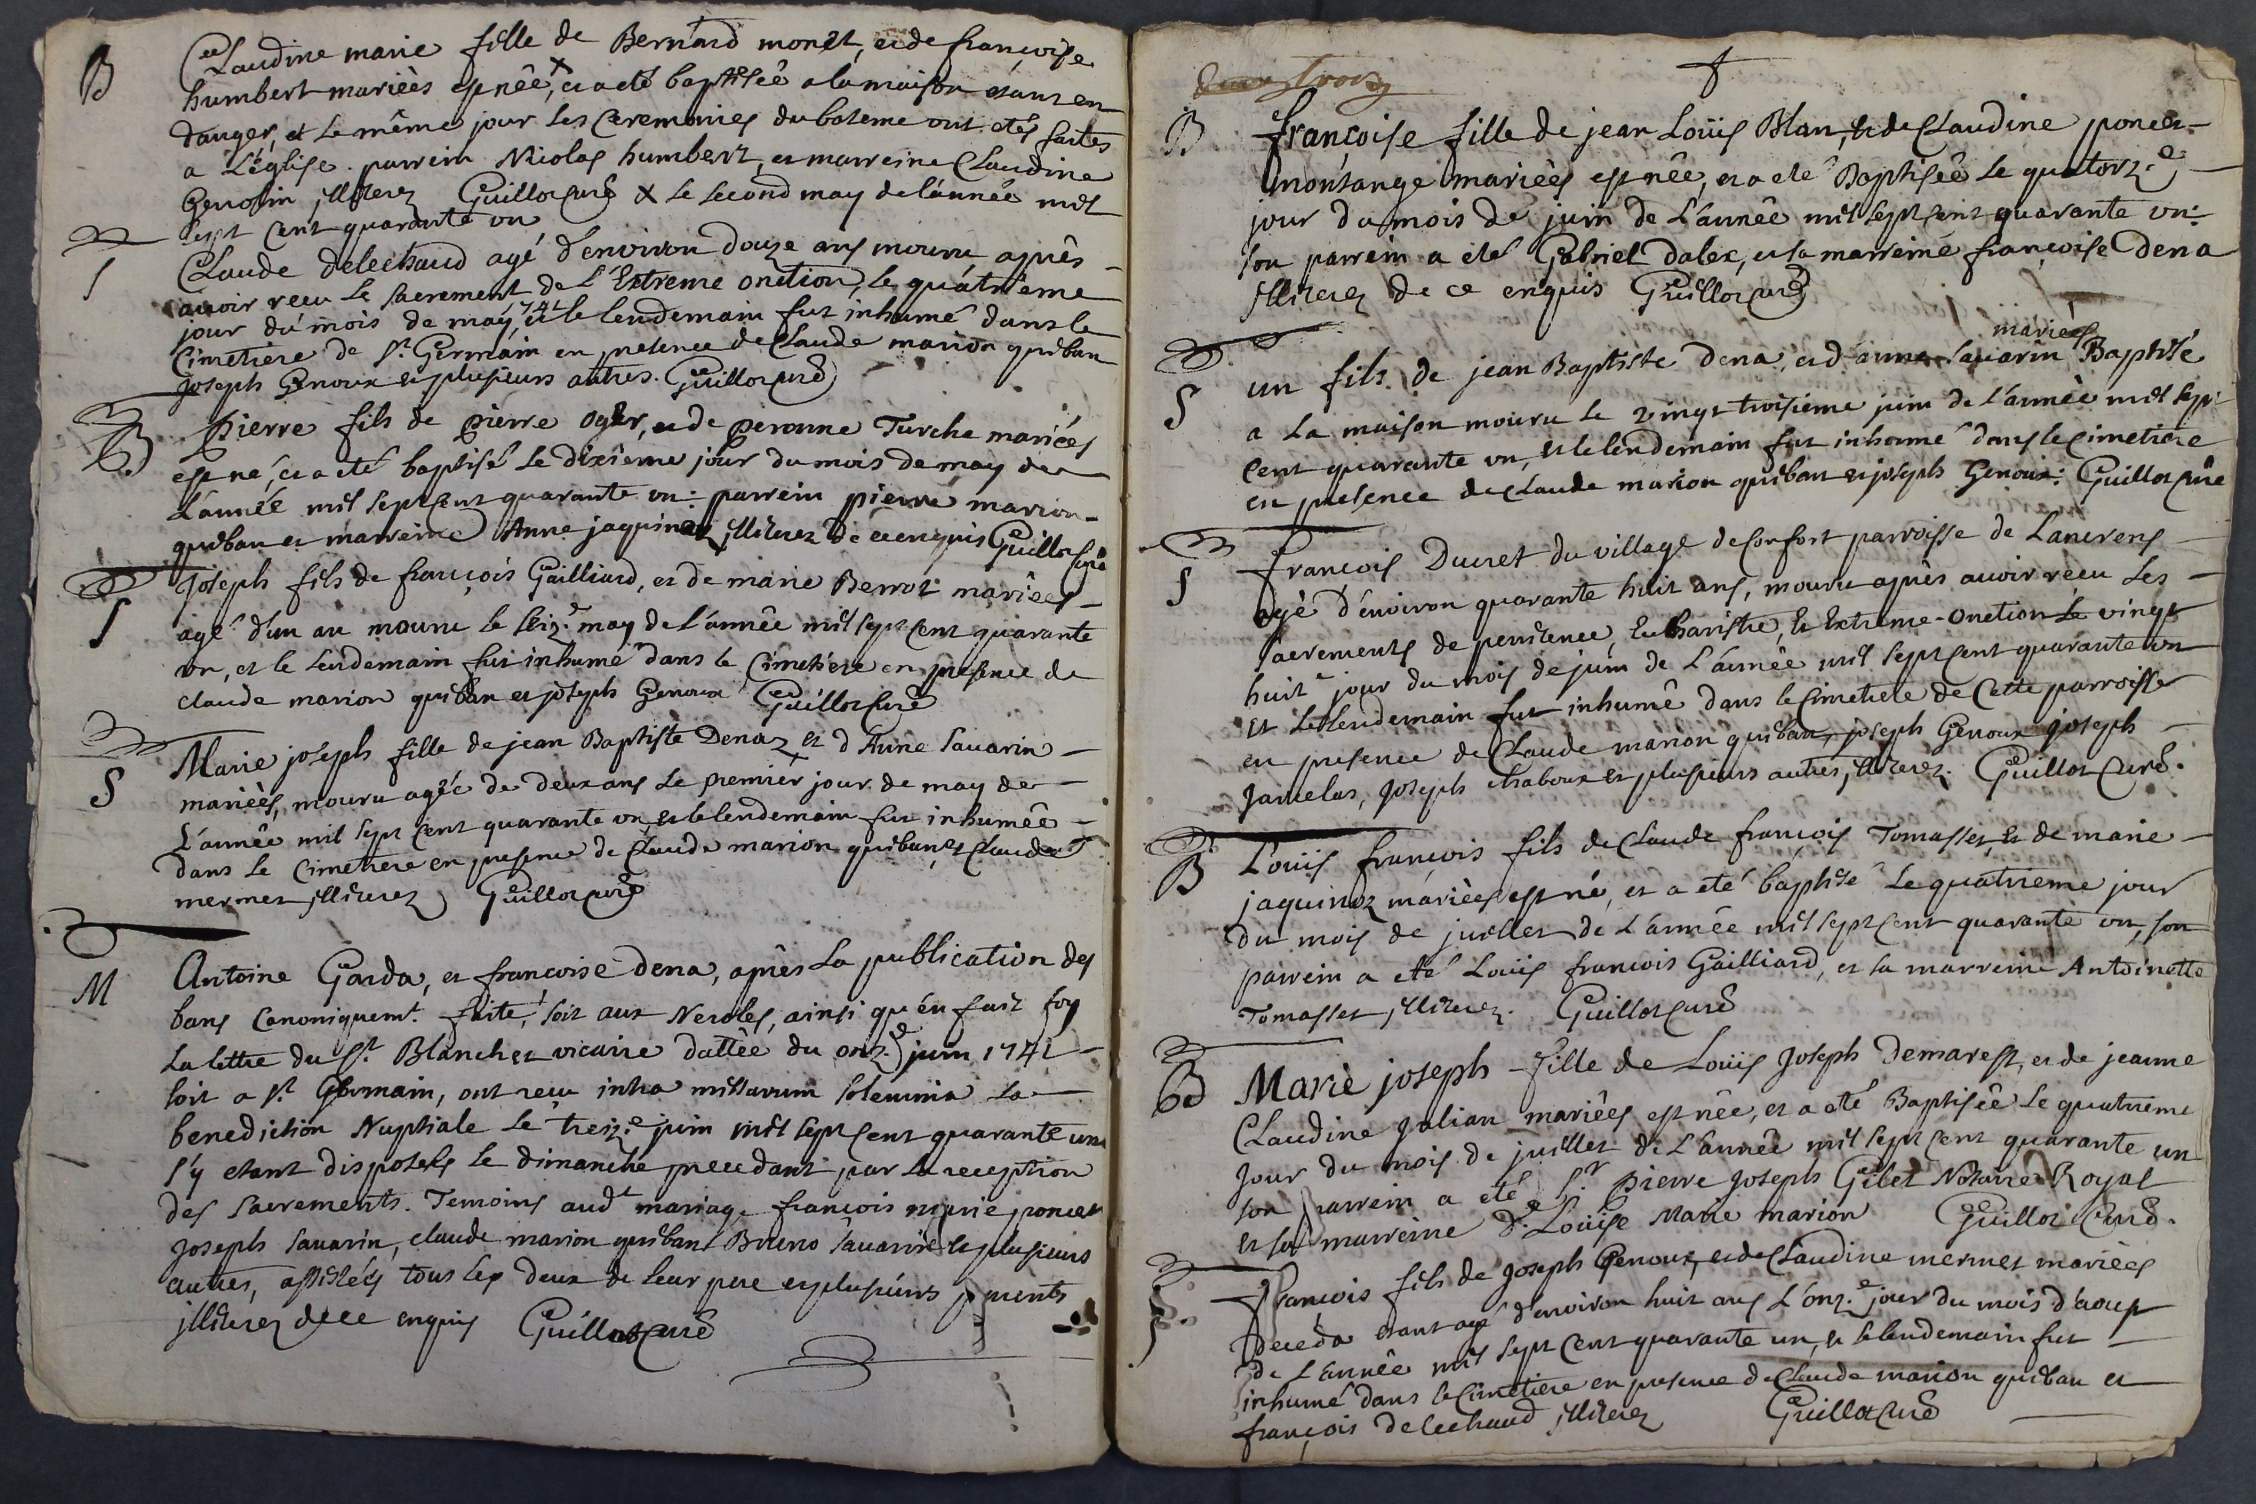 B
Claudine marie fille de Bernard monêt, et de françoise
humbert mariès est nêe, x et a eté baptisêe a la maison etant en
danger, et le même jour les Ceremonies du bateme ont etés faites
a L'êglise. parrein Nicolas humbert, et marreine Claudine
Genolin illiterez Guillot Curê x le second may de l'année mil
sept cent quarante un
S
Claude delechaud agé d'environ douze ans mouru apprês
avoir reçu le sacrement de l'Extreme onction, le quatrieme
jour du mois de may, 1741 et le lendemain fut inhumé dans le
Cimetiere de St Germain en presence de Claude marion quiban
Joseph Genoux et plusieurs autres. Guillot curê
B
Pierre fils de pierre oger, et de peronne Turche mariées
est né, et a eté baptisé le dixieme jour du mois de may de
L'année mil sept cent quarante un : parrein pierre marion
quiban et marreine Anne jaquinoz illiterez de ce enquis Guillot Curê
S
Joseph fils de françois Gailliard, et de marie Berrot mariees
agé d'un an mouru le seiz.e may de l'année mil sept cent quarante
un, et le lendemain fut inhumé dans le Cimetiere en presence de
claude marion quiban et joseph Genoux Guillot Curê
S
Marie joseph fille de jean Baptiste Denaz et d'Anne Savarin
mariès, mouru agée de deux ans le premier jour de may de
L'annêe mil sept cent quarante un, et le lendemain fut inhumêe
dans le Cimetiere en presence de Claude marion quiban, et Claude
mermet illiterez Guillot curê
M
Antoine Garda, et francoise dena, après la publication des
bans Canoniquemt. faite, soit aux Neroles, ainsi qu'en fait foy
la lettre du Sr. Blanchet vicaire dattêe du onz.e juin 1741
soit a St. Germain, ont reçu intra missarum solemnia la
benediction Nuptiale le treiz.e juin mil sept cent quarante un
s'y etant disposels le dimanche precedant par la reception
des Sacrements. Temoins audt mariage françois marie poncet
Joseph Savarin, claude marion quiban Bruno Savarin et plusieurs
autres, assistés tous les deux de leur pere et plusieurs parents
illiterez de ce enquis Guillot Curê
B
françoise fille de jean Loüis Blan, et de Claudine poncet
montange mariês est nêe, et a eté Baptisêe le quatorz.e
jour du mois de juin de L'annêe mil sept cent quarante un :
son parrein a eté Gabriel dalex, et sa marreine françoise Dena
illiterez de ce enquis Guillot curê
S
un fils de jean Baptiste dena, et d'anne Savarin mariées Baptisé
a la maison mouru le vingt troisieme juin de l'année mil sept
cent quarante un, et le lendemain fut inhumé dans le Cimetiere
en presence de Claude marion quiban et joseph Genoux : Guillot Curê
S
François Ducret du village de Confort parroisse de Lancrens
agé d'environ quarante huit ans, mouru après avoir reçu les
sacrements de penitence, Eucharistie, et Extreme-onction le vingt
huite jour du mois de juin de L'année mil sept cent quarante un
et le lendemain fut inhumê dans le Cimetiere de cette parroisse
en presence de Claude marion quiban, joseph Genoux joseph
Jamelas, joseph chaboux et plusieurs autres illiterez. Guillot Curê.
B
Loüis françois fils de Claude françois Tomasset, et de marie
jaquinoz mariées est né, et a eté baptisé le quatrieme jour
du mois de juillet de L'année mil sept cent quarante un, son
parrein a eté Loüis francois Gailliard, et sa marreine Antoinette
Tomasset illiterez. Guillot Curê
B
Marie joseph fille de Loüis Joseph demarest, et de jeanne
Claudine Julian mariêes est nêe, et a eté Baptisêe le quatrieme
Jour du mois de juillet de L'année mil sept cent quarante un
son parrein a eté Sr. pierre Joseph Gilet Notaire Royal
et sa marreine de. Loüise Marie marion Guillot Curê.
S
François fils de Joseph Genoux, et de Claudine mermet mariées
deceda etant agé d'environ huit ans L'onz.e jour du mois d'aoust
de L'année mil sept cent quarante un, et le lendemain fut
inhumé dans le Cimetiere en presence de Claude marion quiban et
françois delechaud illiterez Guillot Curê